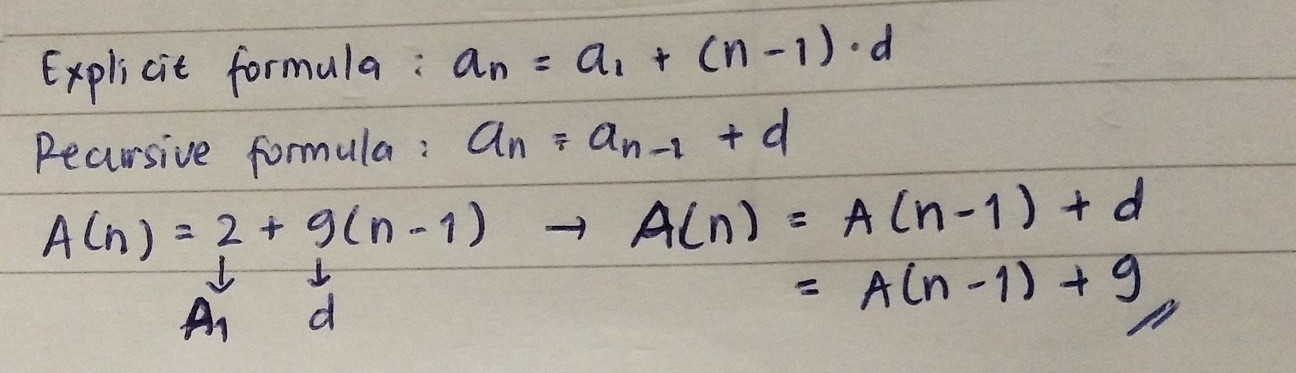 Explicit formula : an = a1 + (n-1)·d
Recursive formula : an = an-1 + d
A(n) = 2 + 9(n-1) → A(n) = A(n-1) + d
↓ ↓ = A(n-1) + 9
A1 d